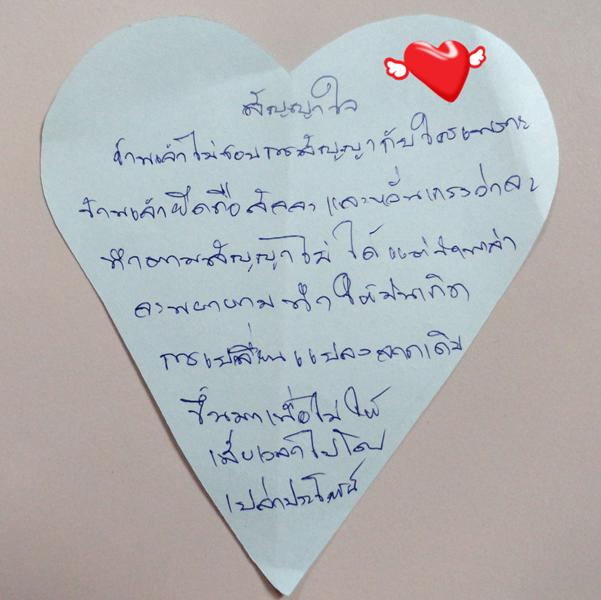 สัญญาใจ
ข้าพเจ้าไม่ชอบการสัญญากับใครเพราะ
ข้าพเจ้ายึดถือสัจจะ และหวั่นเกรงว่าจะ
ทำตามสัญญาไม่ได้ แต่ข้าพเจ้า
จะพยายามทำให้มันเกิด
การเปลี่ยนแปลงจากเดิม
ขึ้นมาเพื่อไม่ให้
เสียเวลาไปโดย
เปล่าประโยชน์